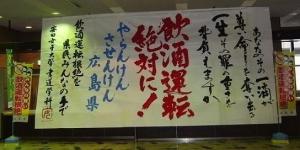 あなたのその一滴が
尊い命を奪い
一生その罪の重さを
背負えますか
飲酒運転
絶対に！
やらんけん
させんけん
広島県
飲酒運転根絶を
県民みんなの手で
安田女子大学書道学科